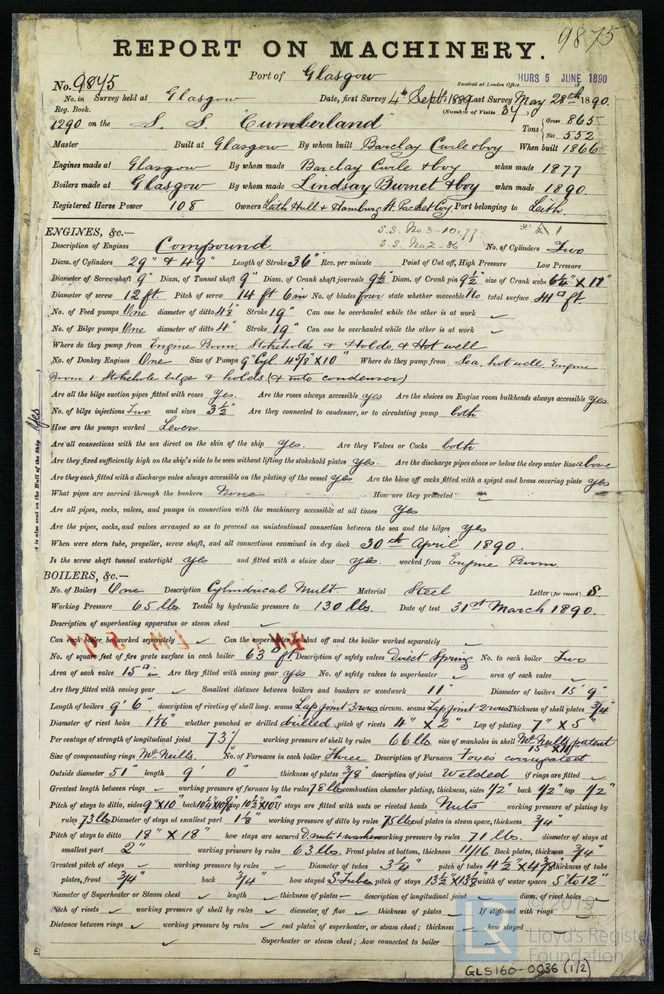 9875
REPORT ON MACHINERY.
Port of Glasgow
Received at London Office
THURS 5 JUNE 1890
No. 9875
No. in Survey held at Glasgow Date, first Survey 4th Sept. 1889 Last Survey May 28th 1890.
Reg. Book. (Number of Visits 34)
1290 on the S. S. Cumberland Tons Gross 865 Net 552
Master Built at Glasgow By whom built Barclay Curle & Coy When built 1866
Engines made at Glasgow By whom made Barclay Curle & Coy when made 1877
Boilers made at Glasgow By whom made Lindsay Burnet & Coy when made 1890.
Registered Horse Power 108 Owners Leith Hull & Hamburg St. Packet Coy. Port belonging to Leith.
S.S. No 3-10,77
S.S. No 2-86
ENGINES, &c.—
Description of Engines Compound. No. of Cylinders Two
Diam. of Cylinders 29" & 49" Length of Stroke 36" Rev. per minute Point of Cut off, High Pressure Low Pressure
Diameter of Screw shaft 9" Diam. of Tunnel shaft 9" Diam. of Crank shaft journals 9½ Diam. of Crank pin 9½ size of Crank webs 6½" X 11"
Diameter of screw 12 ft. Pitch of screw 14 ft 6 in No. of blades four state whether moveable No total surface 44 □ ft.
No. of Feed pumps One diameter of ditto 4½ Stroke 19" Can one be overhauled while the other is at work ✓
No. of Bilge pumps One diameter of ditto 4" Stroke 19" Can one be overhauled while the other is at work ✓
Where do they pump from Engine Room, Stokeholds & Holds, & Hot well
No. of Donkey Engines One Size of Pumps 9" Cyl. 4⅞ X 10" Where do they pump from Sea, hot well, Engine
Room & Stokehole bilge & holds (& into condenser)
Are all the bilge suction pipes fitted with roses Yes. Are the roses always accessible yes Are the sluices on Engine room bulkheads always accessible Yes
No. of bilge injections Two and sizes 3½" Are they connected to condenser, or to circulating pump both
How are the pumps worked Levers
Are all connections with the sea direct on the skin of the ship Yes. Are they Valves or Cocks both
Are they fixed sufficiently high on the ship's side to be seen without lifting the stokehold plates Yes. Are the discharge pipes above or below the deep water line above
Are they each fitted with a discharge valve always accessible on the plating of the vessel yes Are the blow off cocks fitted with a spigot and brass covering plate yes
What pipes are carried through the bunkers None How are they protected
Are all pipes, cocks, valves, and pumps in connection with the machinery accessible at all times Yes
Are the pipes, cocks, and valves arranged so as to prevent an unintentional connection between the sea and the bilges yes
When were stern tube, propeller, screw shaft, and all connections examined in dry dock 30th April 1890.
Is the screw shaft tunnel watertight yes and fitted with a sluice door yes. worked from Engine Room.
BOILERS, &c.—
No. of Boilers One Description Cylindrical Mult. Material Steel Letter (for record) S.
Working Pressure 65 lbs Tested by hydraulic pressure to 130 lbs. Date of test 31st March 1890.
Description of superheating apparatus or steam chest ✓
Can each boiler be worked separately ✓ Can the superheater be shut off and the boiler worked separately ✓
No. of square feet of fire grate surface in each boiler 63 □ ft. Description of safety valves Direct Spring No. to each boiler Two
Area of each valve 15 □ in Are they fitted with easing gear yes No. of safety valves to superheater ✓ area of each valve ✓
Are they fitted with easing gear ✓ Smallest distance between boilers and bunkers or woodwork 11" Diameter of boilers 15' 9"
Length of boilers 9' 6" description of riveting of shell long. seams Lap joint 3 rows circum. seams Lap joint 2 rows Thickness of shell plates ¾"
Diameter of rivet holes whether punched or drilled drilled pitch of rivets 4" X 2" Lap of plating 7" X 5"
Per centage of strength of longitudinal joint 73% working pressure of shell by rules 66 lbs size of manholes in shell McNeill's patent 15" X 11"
Size of compensating rings McNeills. No. of Furnaces in each boiler Three Description of Furnaces Foxes corrugated
Outside diameter 51" length 9' 0" thickness of plates ⅜" description of joint Welded if rings are fitted ✓
Greatest length between rings ✓ working pressure of furnace by the rules 78 lbs combustion chamber plating, thickness, sides ½" back ½" top ½"
Pitch of stays to ditto, sides 9" X 10" back top If stays are fitted with nuts or riveted heads Nuts working pressure of plating by
rules 73 lbs Diameter of stays at smallest part 1⅛" working pressure of ditto by rules 75 lbs end plates in steam space, thickness ¾"
Pitch of stays to ditto 18" X 18" how stays are secured D. nuts & washers working pressure by rules 71 lbs. diameter of stays at
smallest part 2" working pressure by rules 63 lbs. Front plates at bottom, thickness 11/16 Back plates, thickness ¾"
Greatest pitch of stays ✓ working pressure by rules ✓ Diameter of tubes 3¼" pitch of tubes 4½ X 4⅜ thickness of tube
plates, front ¾" back ¾" how stayed S. Tubes pitch of stays 13½ X 13⅛ width of water spaces 5" to 12"
Diameter of Superheater or Steam chest ✓ length ✓ thickness of plates description of longitudinal joint ✓ diam. of rivet holes
Pitch of rivets ✓ working pressure of shell by rules ✓ diameter of flue ✓ thickness of plates ✓ If stiffened with rings ✓
Distance between rings ✓ working pressure by rules ✓ end plates of superheater, or steam chest; thickness ✓ how stayed
✓ Superheater or steam chest; how connected to boiler ✓
Yes
is also sent on the Hull of the Ship
© 2019
LR
Lloyd's Register
Foundation
GLS160-0036 (1/2)